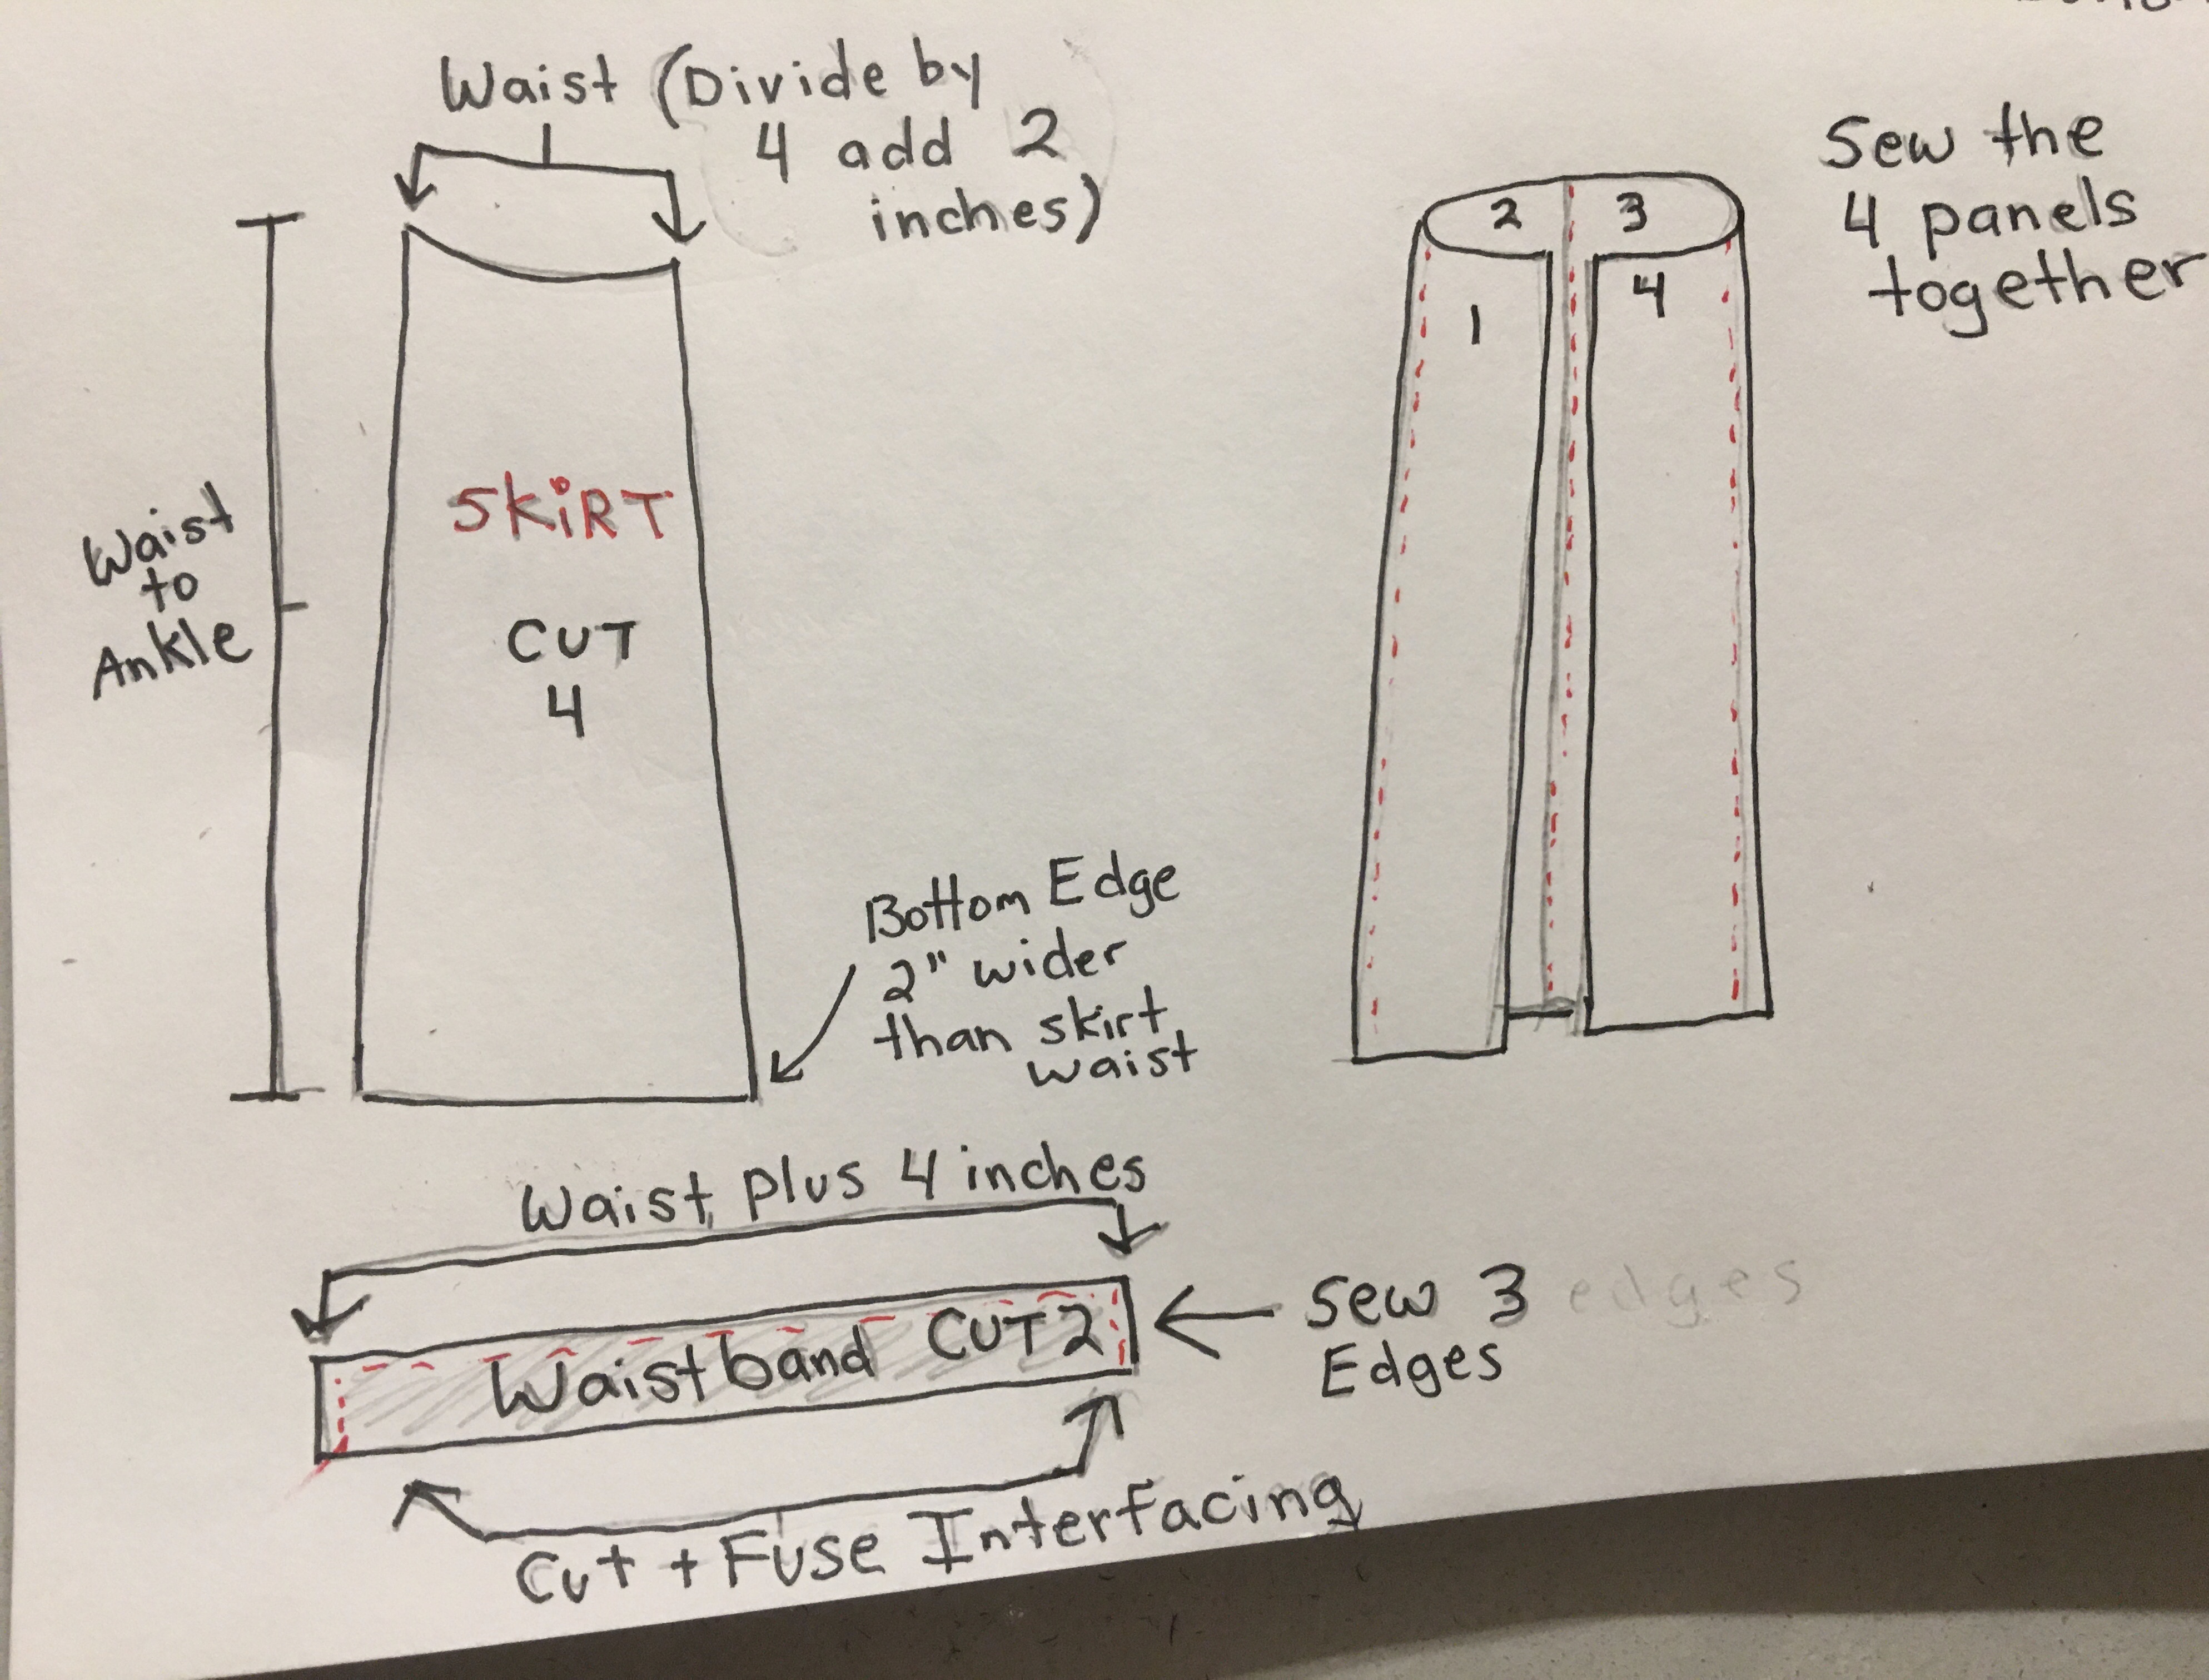 Waist (Divide by
4 add 2
inches)
Waist
to
Ankle
SKiRT
CUT
4
Bottom Edge
2" wider
than skirt
waist
2 3
1 4
Sew the
4 panels
together
Waist plus 4 inches
Waistband CUT 2
Sew 3 edges
Edges
Cut + Fuse Interfacing